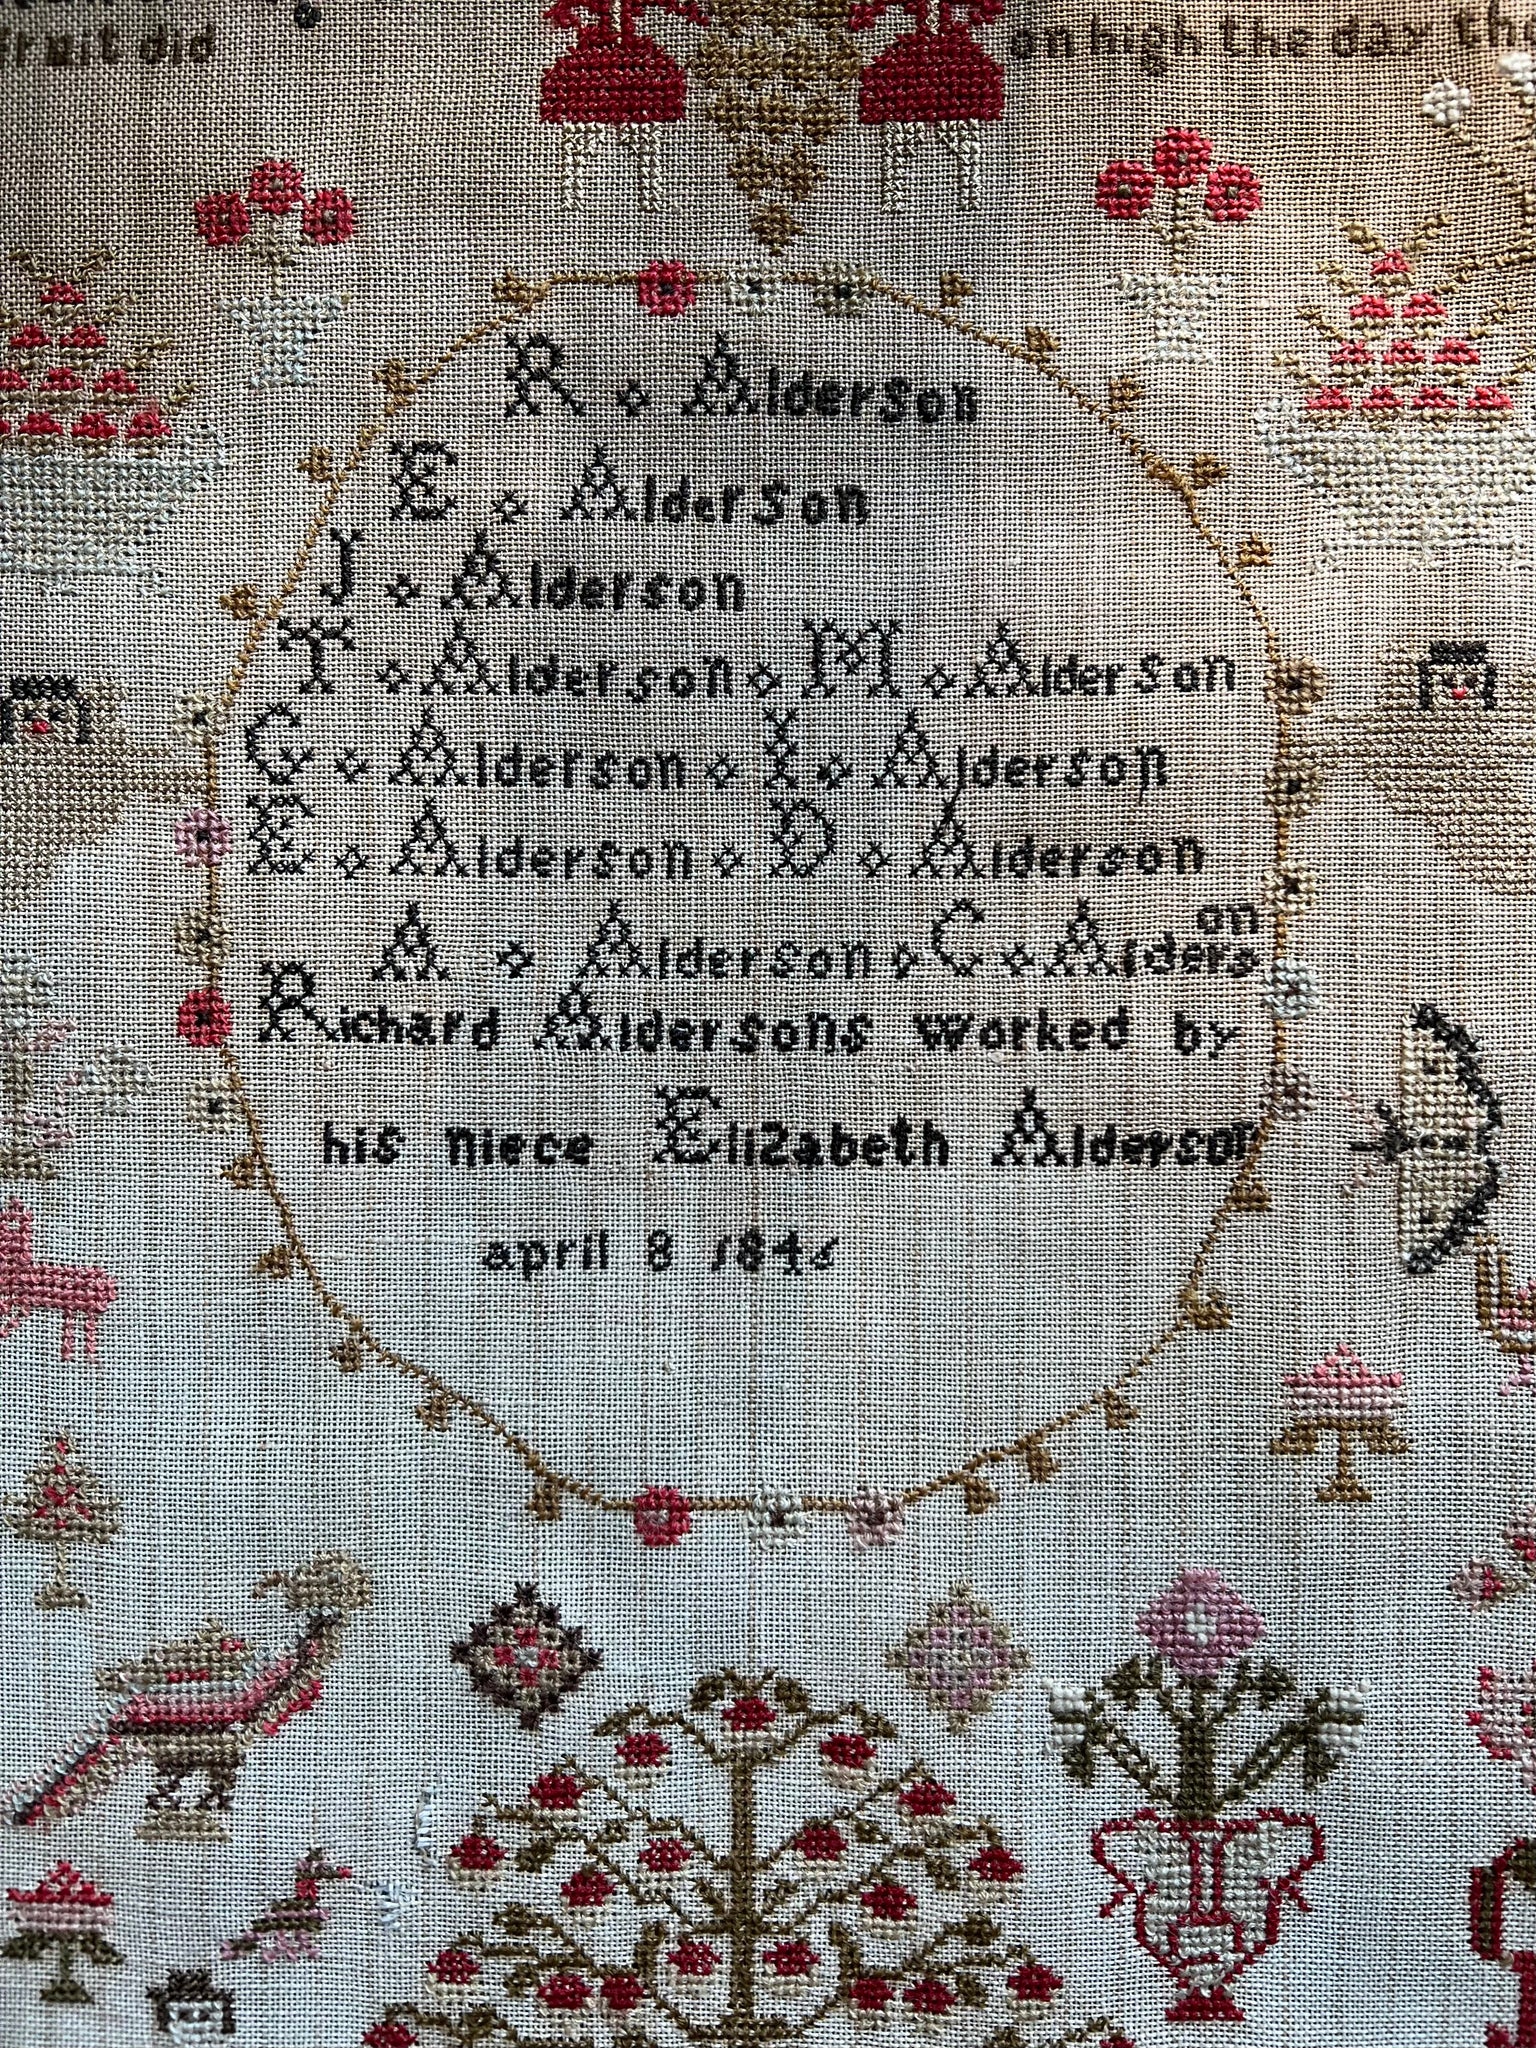 fruit did
on high the day the
R Alderson
E Alderson
J Alderson
T Alderson M Alderson
G Alderson I Alderson
E Alderson D Alderson
A Alderson C Alders
on
Richard Aldersons worked by
his niece Elizabeth Alderson
april 8 1846